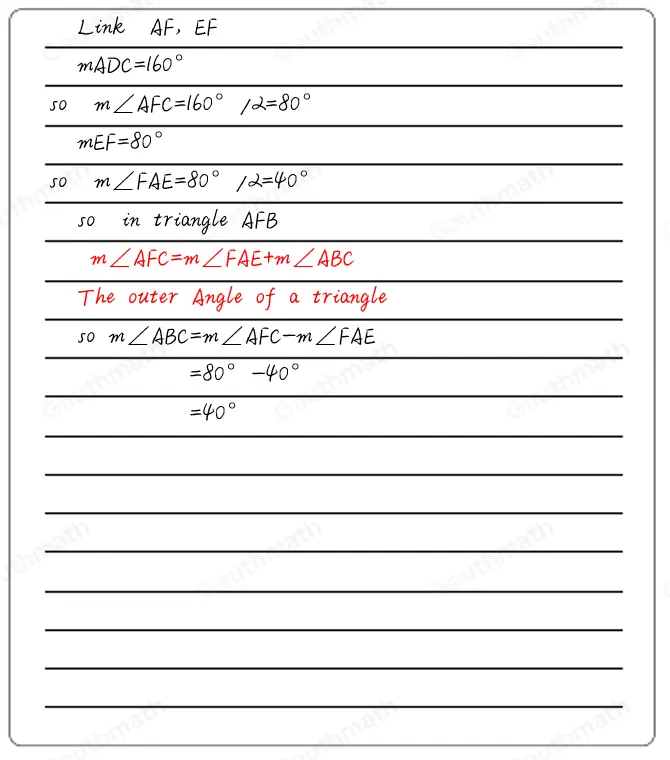 Link AF, EF
mADC=160°
so m∠AFC=160° /2=80°
mEF=80°
so m∠FAE=80° /2=40°
so in triangle AFB
m∠AFC=m∠FAE+m∠ABC
The outer Angle of a triangle
so m∠ABC=m∠AFC-m∠FAE
=80° -40°
=40°